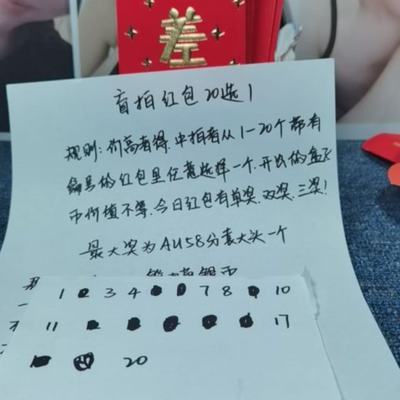 盲拍红包20选1
规则:价高者得.中拍者从1—20个都有
编号的红包里任意选择一个.开出的金银
币价值不等.今日红包有单奖.双奖.三奖!
最大奖为AU58分袁大头一个
1 3 4 7 8 10
11 17
20